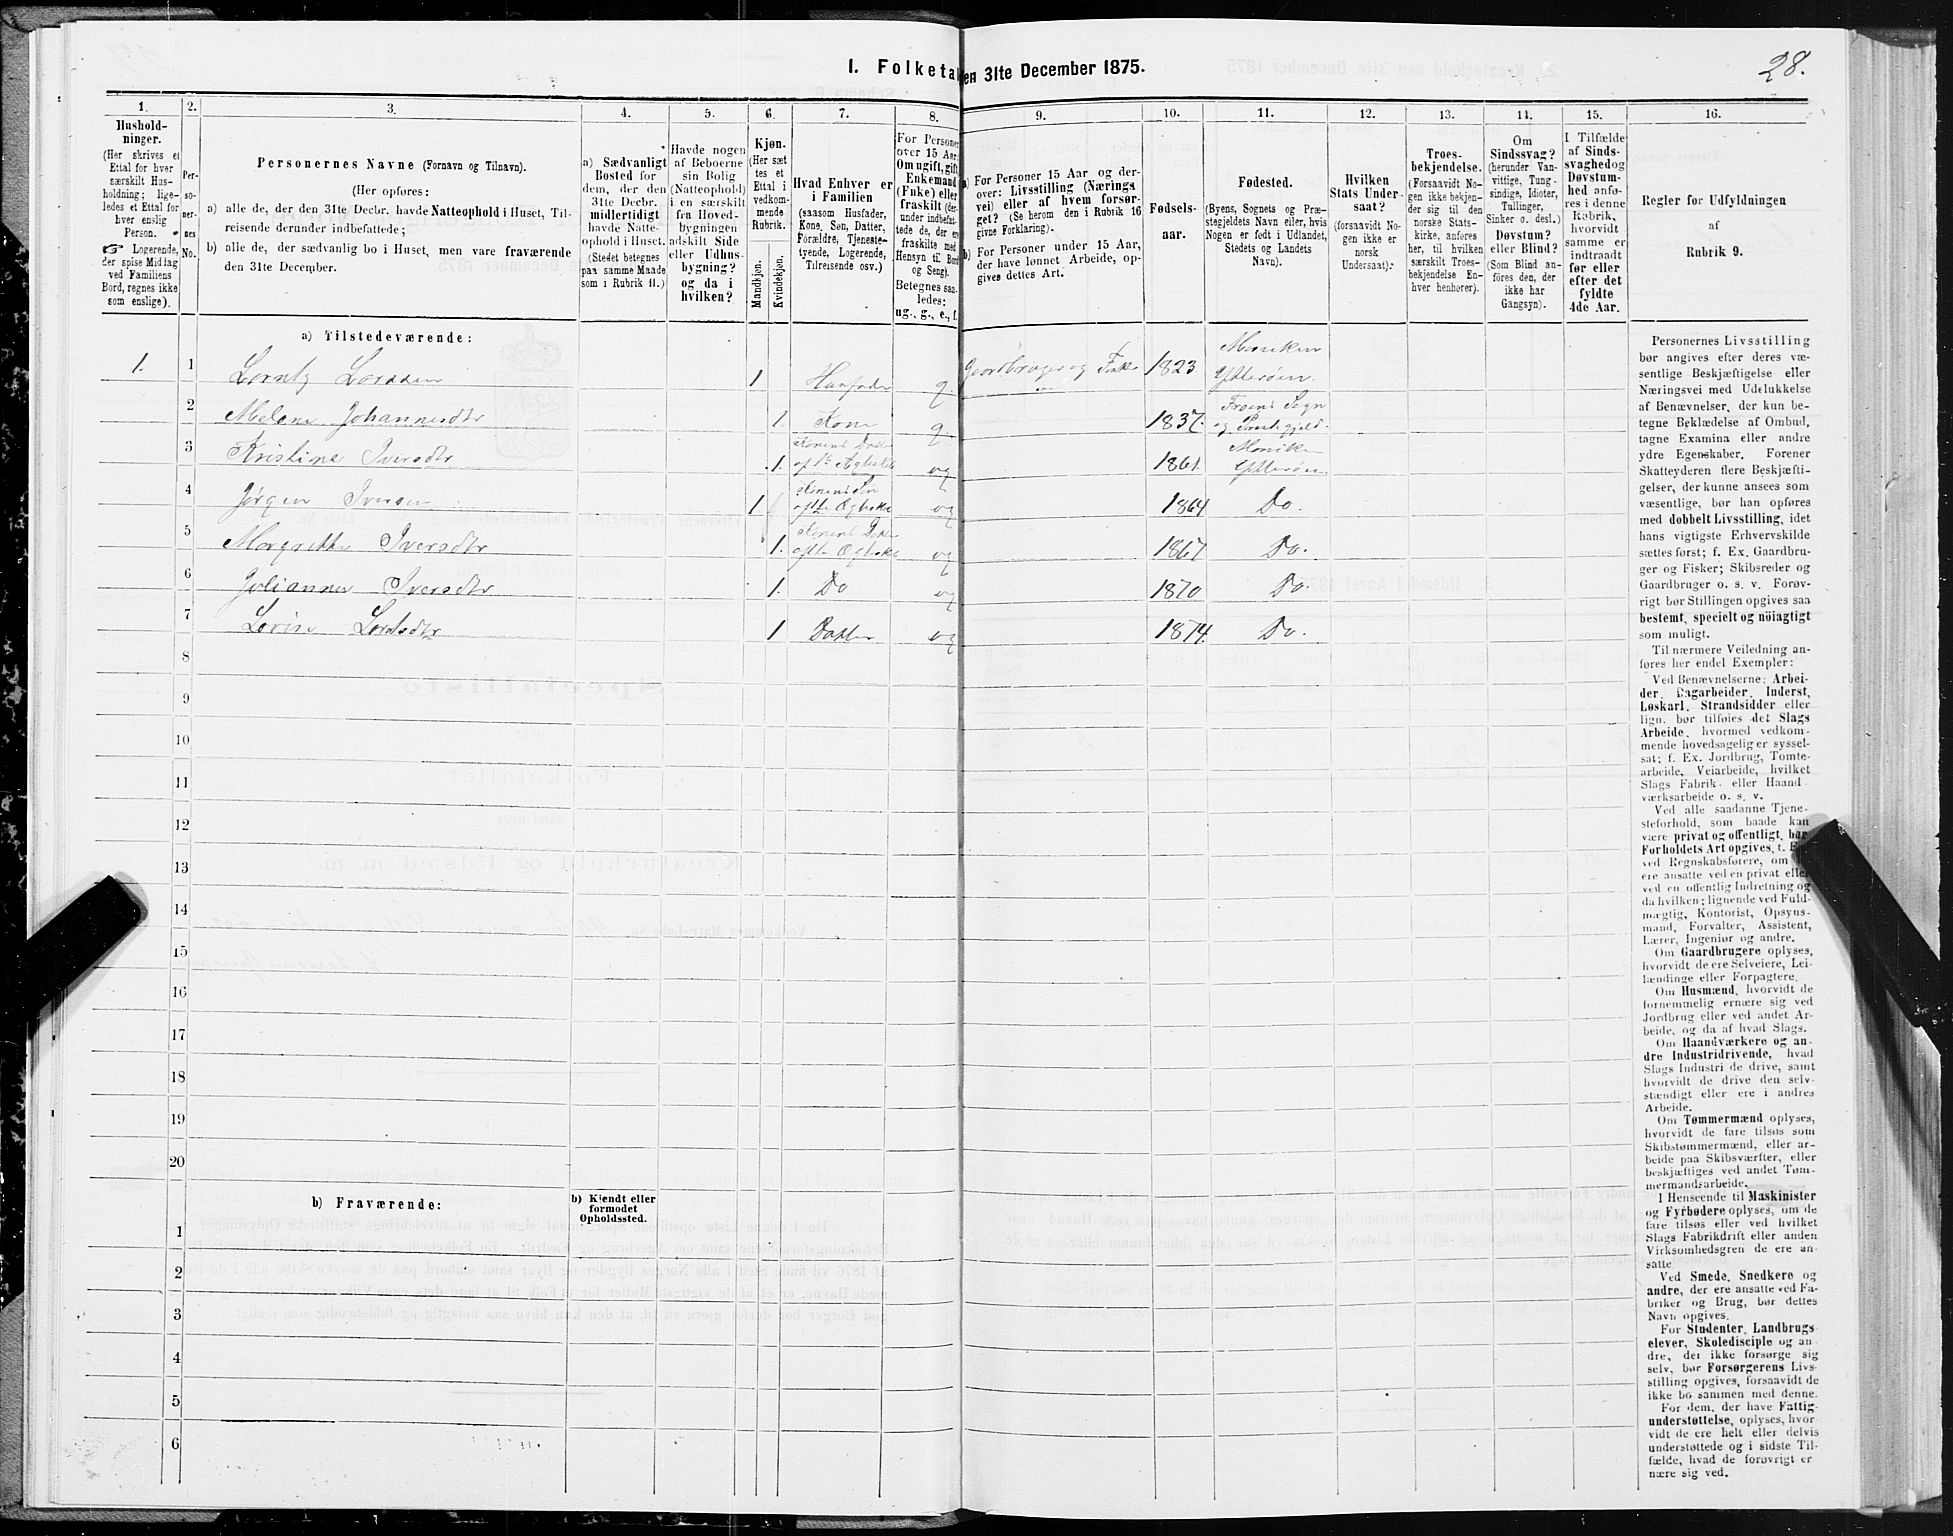 28.
I. Folketal den 31te December 1875.
1.
2.
3.
4.
5.
6.
7.
8.
9.
10.
11.
12.
13.
14.
15.
16.
Hushold-
ninger.
(Her skrives et
Ettal for hver
særskilt Hus-
holdning; lige-
ledes et Ettal for
hver enslig
Person.
☞ Logerende,
der spise Middag
ved Familiens
Bord, regnes ikke
som enslige).
Per-
so-
ner-
nes
No.
Personernes Navne (Fornavn og Tilnavn).
(Her opføres:
a) alle de, der den 31te Decbr. havde Natteophold i Huset, Til-
reisende derunder indbefattede;
b) alle de, der sædvanlig bo i Huset, men vare fraværende
den 31te December.
a) Sædvanligt
Bosted for
dem, der den
31te Decbr.
midlertidigt
havde Natte-
ophold i Huset.
(Stedet betegnes
paa samme Maade
som i Rubrik 11.)
Havde nogen
af Beboerne
sin Bolig
(Natteophold)
i en særskilt
fra Hoved-
bygningen
adskilt Side
eller Udhus-
bygning?
og da i
hvilken?
Kjøn.
(Her sæt
tes et
Ettal i
vedkom-
mende
Rubrik.
Mandkjøn.
Kvindekjøn.
Hvad Enhver er
i Familien
(saasom Husfader,
Kone, Søn, Datter,
Forældre, Tjeneste-
tyende, Logerende,
Tilreisende osv.)
For Personer
over 15 Aar:
Om ugift, gift,
Enkemand
(Enke) eller
fraskilt (der-
under indbefat-
tede de, der ere
fraskilte med
Hensyn til Bord
og Seng).
Betegnes saa-
ledes:
ug., g., e., f.
a) For Personer 15 Aar og der-
over: Livsstilling (Nærings
vei) eller af hvem forsør-
get? (Se herom den i Rubrik 16
givne Forklaring).
b) For Personer under 15 Aar,
der have lønnet Arbeide, op-
gives dettes Art.
Fødsels-
aar.
Fødested.
(Byens, Sognets og Præ-
stegjeldets Navn eller, hvis
Nogen er født i Udlandet,
Stedets og Landets
Navn).
Hvilken
Stats Under-
saat?
(forsaavidt No-
gen ikke er
norsk
Undersaat).
Troes-
bekjendelse.
(Forsaavidt No-
gen ikke bekjen-
der sig til den
norske Stats-
kirke, anføres
her, til hvilken
særskilt Troes-
bekjendelse En-
hver henhører).
Om
Sindssvag?
(herunder Van-
vittige, Tung-
sindige, Idioter,
Tullinger,
Sinker o. desl.)
Døvstum?
eller Blind?
(Som Blind an-
føres den, der
ikke har
Gangsyn).
I Tilfælde
af Sinds-
svaghed og
Døvstum-
hed anfø-
res i denne
Rubrik,
hvorvidt
samme er
indtraadt
før eller
efter det
fyldte
4de Aar.
Regler for Udfyldningen
af
Rubrik 9.
a) Tilstedeværende:
1. 1 Lorntz Larssen 1 Husfader g. Gaardbruger og Fisker 1823 Ytterøen.
2 Johannesdtr 1 Kone g. 1837. Sogn
og Præstegjeld.
3 Kristine Iversdtr 1. ug 1861. Ytterøen
4 Jørgen Iversen 1 ug 1864 Do.
5 Margrethe Iversdtr 1. ug 1867 Do.
6 Iversdtr 1. Do ug 1870 Do.
7 1 Datter ug 1874. Do.
8
9
10
11
12
13
14
15
16
17
18
19
20
b) Fraværende:
b) Kjendt eller
formodet
Opholdssted.
1
2
3
4
5
6
Personernes Livsstilling
bør angives efter deres væ-
sentlige Beskjæftigelse eller
Næringsvei med Udelukkelse
af Benævnelser, der kun be-
tegne Beklædelse af Ombud,
tagne Examina eller andre
ydre Egenskaber. Forener
Skatteyderen flere Beskjæfti-
gelser, der kunne ansees som
væsentlige, bør han opføres
med dobbelt Livsstilling, idet
hans vigtigste Erhvervskilde
sættes først; f. Ex. Gaardbru-
ger og Fisker; Skibsreder og
Gaardbruger o. s. v. Forøv-
rigt bør Stillingen opgives saa
bestemt, specielt og nöiagtigt
som muligt.
Til nærmere Veiledning an-
føres her endel Exempler:
Ved Benævnelserne: Arbei-
der, Dagarbeider, Inderst,
Løskarl, Strandsidder eller
lign. bør tilføies det Slags
Arbeide, hvormed vedkom-
mende hovedsagelig er syssel-
sat; f. Ex. Jordbrug, Tomte-
arbeide, Veiarbeide, hvilket
Slags Fabrik- eller Haand
værksarbeide o. s. v.
Ved alle saadanne Tjene-
steforhold, som baade kan
være privat og offentligt, bør
Forholdets Art opgives, f.
ved Regnskabsførere, om
ere ansatte ved en privat eller
ved en offentlig Indretning og
da hvilken; lignende ved Fuld-
mægtig, Kontorist, Opsyns-
mand, Forvalter, Assistent,
Lærer, Ingeniør og andre.
Om Gaardbrugere oplyses,
hvorvidt de ere Selveiere, Lei-
lændinge eller Forpagtere.
Om Husmænd, hvorvidt de
fornemmelig ernære sig ved
Jordbrug eller ved andet Ar-
beide, og da af hvad Slags.
Om Haandværkere og an-
dre Industridrivende, hvad
Slags Industri de drive, samt
hvorvidt de drive den selv-
stændigt eller ere i andres
Arbeide.
Om Tømmermænd oplyses,
hvorvidt de fare tilsøs som
Skibstømmermænd, eller ar-
beide paa Skibsværfter, eller
beskjæftiges ved andet Tøm-
mermandsarbeide.
I Henseende til Maskinister
og Fyrbødere oplyses, om de
fare tilsøs eller ved hvilket
Slags Fabrikdrift eller anden
Virksomhedsgren de ere an-
satte
Ved Smede, Snedkere og
andre, der ere ansatte ved Fa-
briker og Brug, bør dettes
Navn opgives.
For Studenter, Landbrugs-
elever, Skoledisciple og an
dre, der ikke forsørge sig
selv, bør Forsørgerens Livs-
stilling opgives, forsaavidt de
ikke bo sammen med denne.
For dem, der have Fattig-
understøttelse, oplyses, hvor-
vidt de ere helt eller delvis
understøttede og i sidste Til-
fælde, hvad de forøvrigt er
nære sig ved.